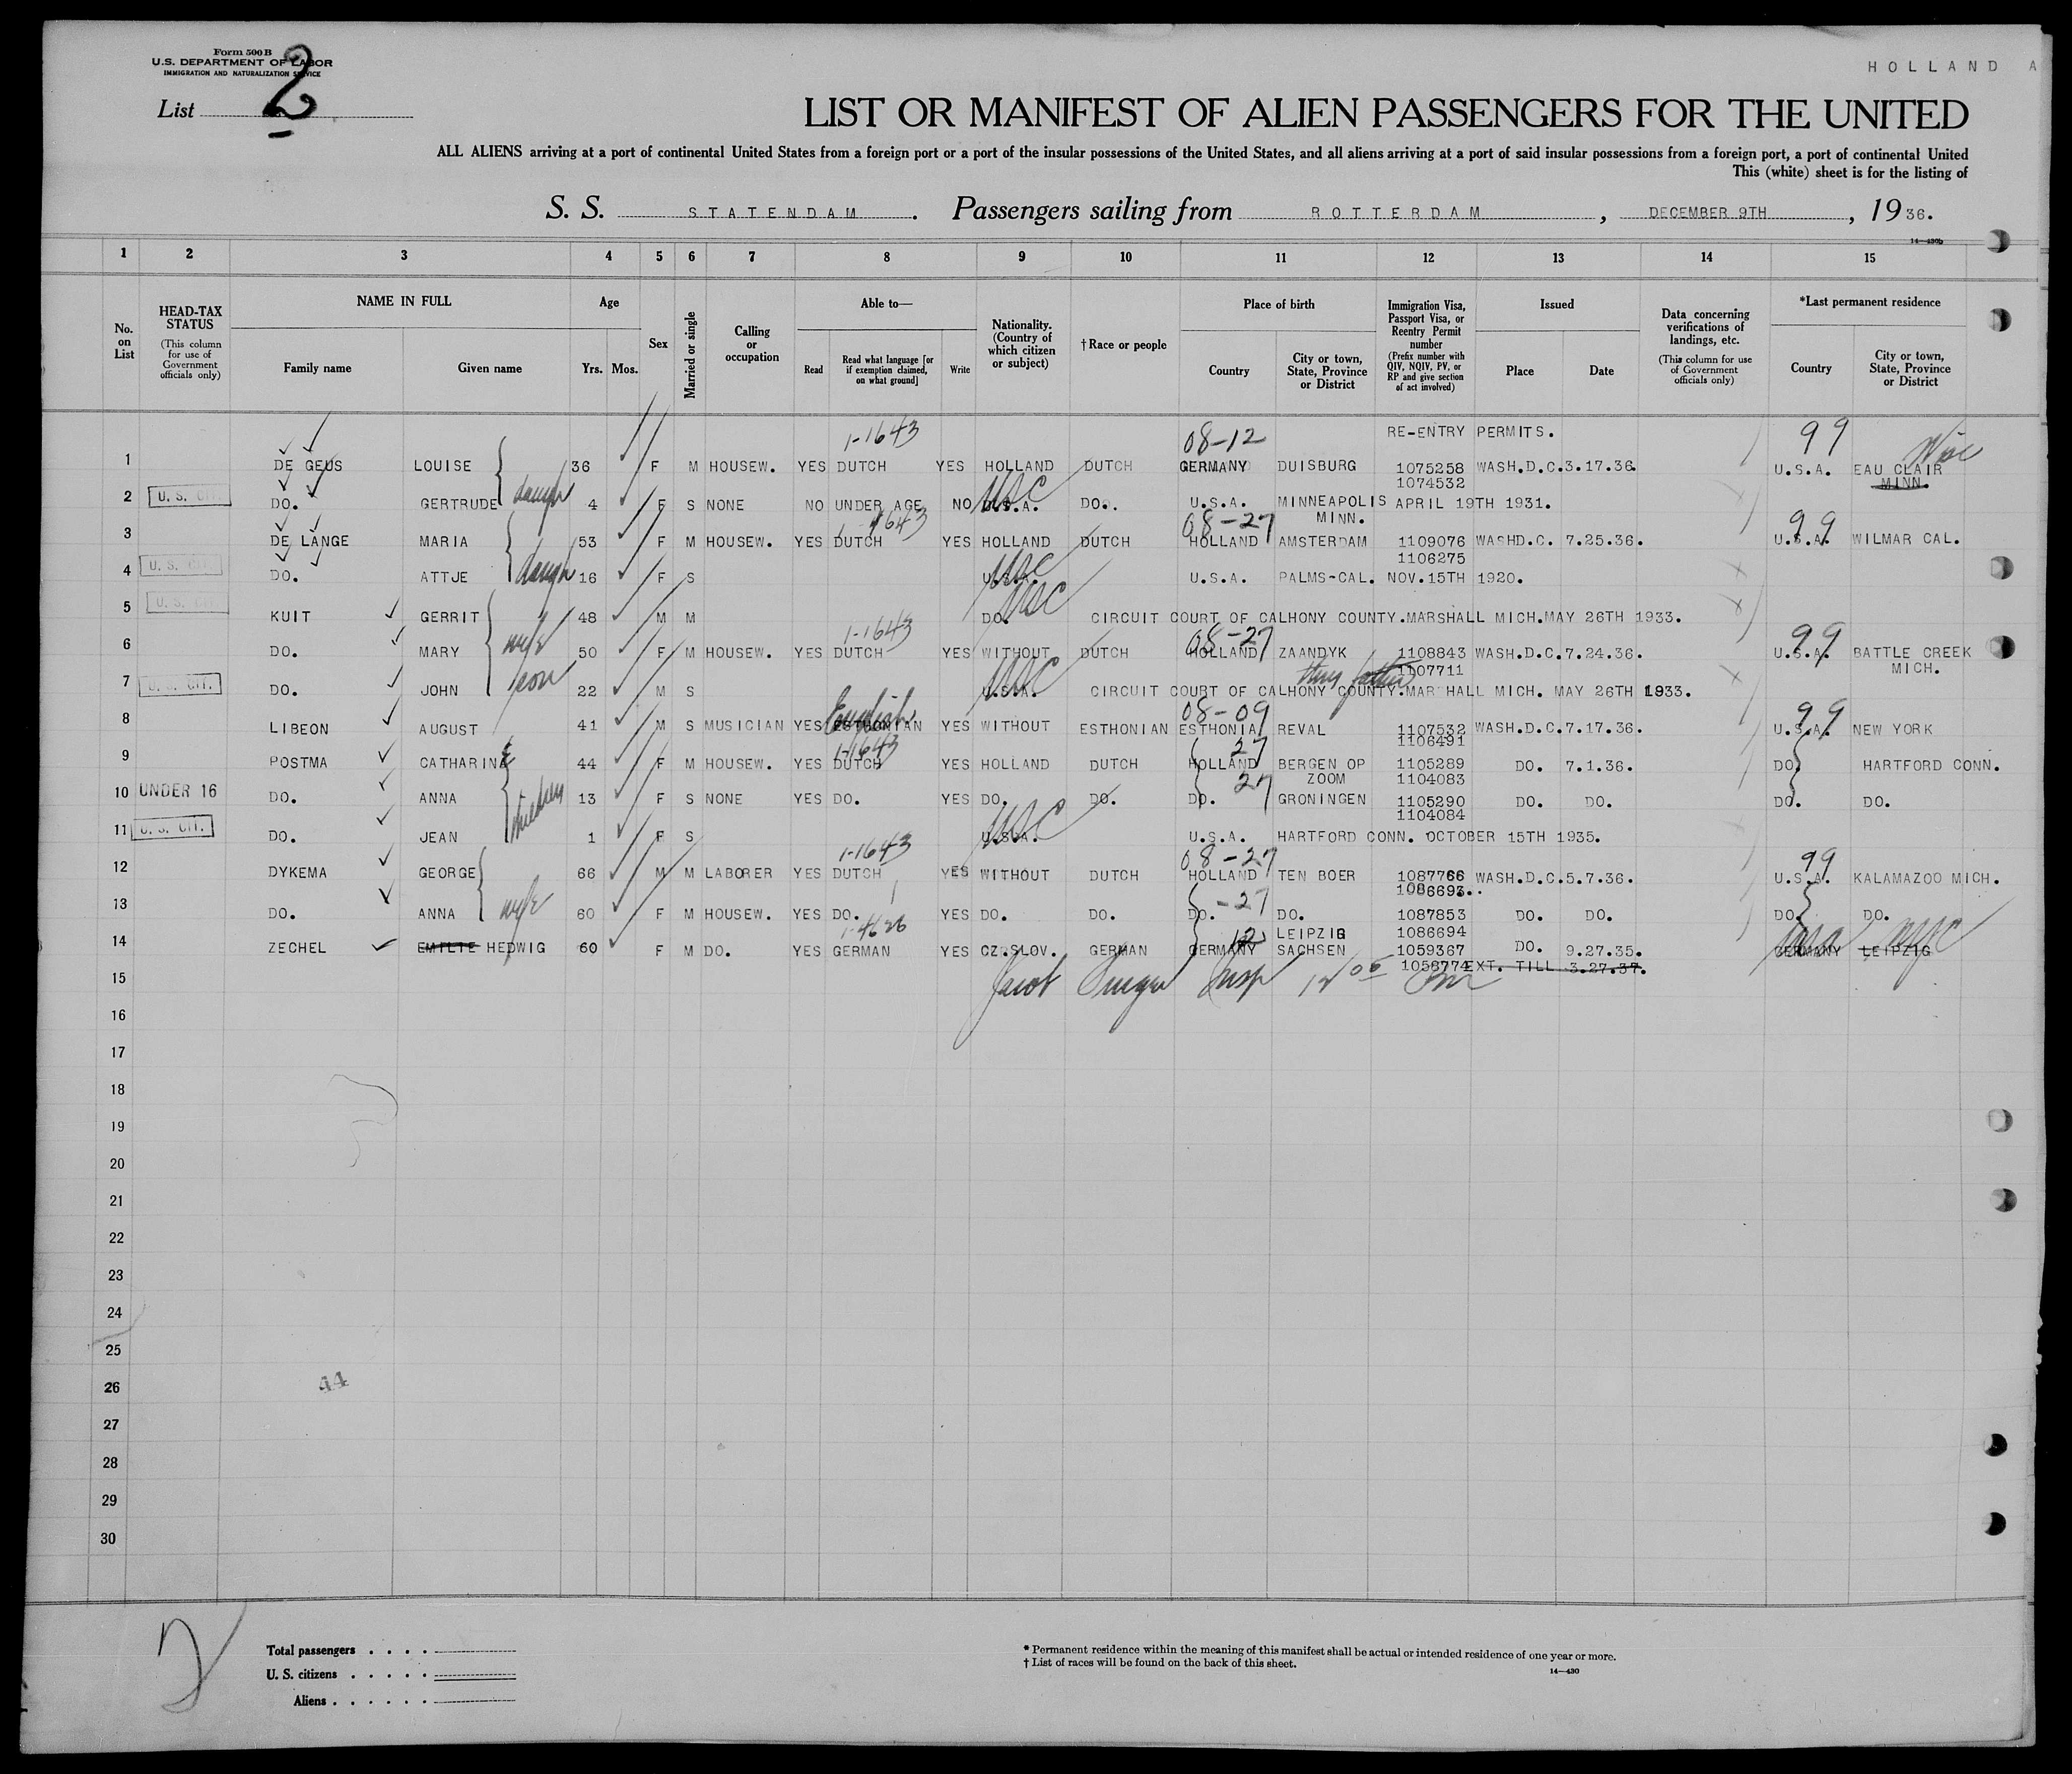 Form 500 B
U.S. DEPARTMENT OF LABOR
IMMIGRATION AND NATURALIZATION SERVICE
HOLLAND A
List 2
LIST OR MANIFEST OF ALIEN PASSENGERS FOR THE UNITED
ALL ALIENS arriving at a port of continental United States from a foreign port or a port of the insular possessions of the United States, and all aliens arriving at a port of said insular possessions from a foreign port, a port of continental United
This (white) sheet is for the listing of
S. S. STATENDAM. Passengers sailing from ROTTERDAM, DECEMBER 9TH, 1936.
14—430b
1 2 3 4 5 6 7 8 9 10 11 12 13 14 15
No. on List
HEAD-TAX STATUS (This column for use of Government officials only)
NAME IN FULL
Family name Given name
Age
Yrs. Mos.
Sex
Married or single
Calling or occupation
Able to—
Read Read what language [or if exemption claimed, on what ground] Write
Nationality. (Country of which citizen or subject)
†Race or people
Place of birth
Country City or town, State, Province or District
Immigration Visa, Passport Visa, or Reentry Permit number (Prefix number with QIV, NQIV, PV, or RP and give section of act involved)
Issued
Place Date
Data concerning verifications of landings, etc. (This column for use of Government officials only)
*Last permanent residence
Country City or town, State, Province or District
1-1643 08-12 RE-ENTRY PERMITS. 99 Wisc
1 DE GEUS LOUISE 36 F M HOUSEW. YES DUTCH YES HOLLAND DUTCH GERMANY DUISBURG 1075258 WASH.D.C. 3.17.36. U.S.A. EAU CLAIR
1074532 MINN.
2 U. S. CIT. DO. GERTRUDE daugh 4 F S NONE NO UNDER AGE NO U.S.A. USC DO. U.S.A. MINNEAPOLIS APRIL 19TH 1931.
1-1643 08-27 MINN. 99
3 DE LANGE MARIA 53 F M HOUSEW. YES DUTCH YES HOLLAND DUTCH HOLLAND AMSTERDAM 1109076 WASHD.C. 7.25.36. U.S.A. WILMAR CAL.
1106275
4 U. S. CIT. DO. ATTJE daugh 16 F S U.S.A. USC U.S.A. PALMS-CAL. NOV.15TH 1920.
5 U. S. CIT. KUIT GERRIT 48 M M DO. USC CIRCUIT COURT OF CALHONY COUNTY.MARSHALL MICH.MAY 26TH 1933.
1-1643 08-27 99
6 DO. MARY wife 50 F M HOUSEW. YES DUTCH YES WITHOUT DUTCH HOLLAND ZAANDYK 1108843 WASH.D.C. 7.24.36. U.S.A. BATTLE CREEK
1107711 MICH.
thru father
7 U. S. CIT. DO. JOHN son 22 M S U.S.A. USC CIRCUIT COURT OF CALHONY COUNTY.MARSHALL MICH. MAY 26TH 1933.
English 08-09 99
8 LIBEON AUGUST 41 M S MUSICIAN YES ESTHONIAN YES WITHOUT ESTHONIAN ESTHONIA REVAL 1107532 WASH.D.C. 7.17.36. U.S.A. NEW YORK
1106491
1-1643 27
9 POSTMA CATHARINE 44 F M HOUSEW. YES DUTCH YES HOLLAND DUTCH HOLLAND BERGEN OP 1105289 DO. 7.1.36. DO. HARTFORD CONN.
ZOOM 1104083
27
10 UNDER 16 DO. ANNA children 13 F S NONE YES DO. YES DO. DO. DO. GRONINGEN 1105290 DO. DO. DO. DO.
1104084
11 U. S. CIT. DO. JEAN 1 F S U.S.A. USC U.S.A. HARTFORD CONN. OCTOBER 15TH 1935.
1-1643 08-27 99
12 DYKEMA GEORGE 66 M M LABORER YES DUTCH YES WITHOUT DUTCH HOLLAND TEN BOER 1087766 WASH.D.C. 5.7.36. U.S.A. KALAMAZOO MICH.
1086693..
-27
13 DO. ANNA wife 60 F M HOUSEW. YES DO. YES DO. DO. DO. DO. 1087853 DO. DO. DO. DO.
1-4626 12 LEIPZIG 1086694 USA NYC
14 ZECHEL EMILIE HEDWIG 60 F M DO. YES GERMAN YES CZ.SLOV. GERMAN GERMANY SACHSEN 1059367 DO. 9.27.35. GERMANY LEIPZIG
1058774 EXT. TILL 3.27.37.
15 Jacob Insp
16
17
18
19
20
21
22
23
24
25
26
44
27
28
29
30
2
Total passengers . . . .
U. S. citizens . . . . .
Aliens . . . . . .
* Permanent residence within the meaning of this manifest shall be actual or intended residence of one year or more.
† List of races will be found on the back of this sheet.
14—430